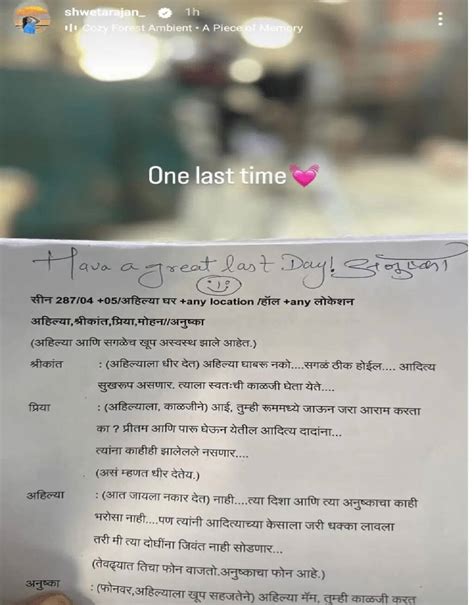 shwetarajan_ 1h
Cozy Forest Ambient • A Piece of Memory
One last time
Have a great last Day! अनुष्का
सीन 287/04 +05/अहिल्या घर +any location /हॉल +any लोकेशन
अहिल्या,श्रीकांत,प्रिया,मोहन//अनुष्का
(अहिल्या आणि सगळेच खूप अस्वस्थ झाले आहेत.)
श्रीकांत : (अहिल्याला धीर देत) अहिल्या घाबरू नको....सगळं ठीक होईल.... आदित्य
सुखरूप असणार. त्याला स्वतःची काळजी घेता येते....
प्रिया : (अहिल्याला, काळजीने) आई, तुम्ही रूममध्ये जाऊन जरा आराम करता
का ? प्रीतम आणि पारू घेऊन येतील आदित्य दादांना...
त्यांना काहीही झालेलं नसणार....
(असं म्हणत धीर देतेय.)
अहिल्या : (आत जायला नकार देत) नाही....त्या दिशा आणि त्या अनुष्काचा काही
भरोसा नाही....पण त्यांनी आदित्याच्या केसाला जरी धक्का लावला
तरी मी त्या दोघींना जिवंत नाही सोडणार...
(तेवढ्यात तिचा फोन वाजतो.अनुष्काचा फोन आहे.)
अनुष्का : (फोनवर,अहिल्याला खूप सहजतेने) अहिल्या मॅम, तुम्ही काळजी करत